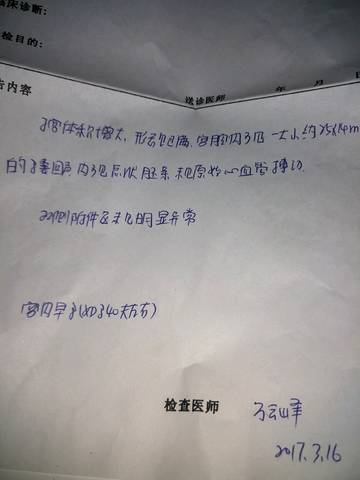 临床诊断:
检目的:
告内容 送诊医师 年 月 日
子宫体积增大,形态饱满,宫腔内可见一大小约25x14m
的孕囊,内可见点状胚条和原始心血管搏动。
双侧附件区未见明显异常
宫内早孕(如孕40天左右)
检查医师
2017.3.16